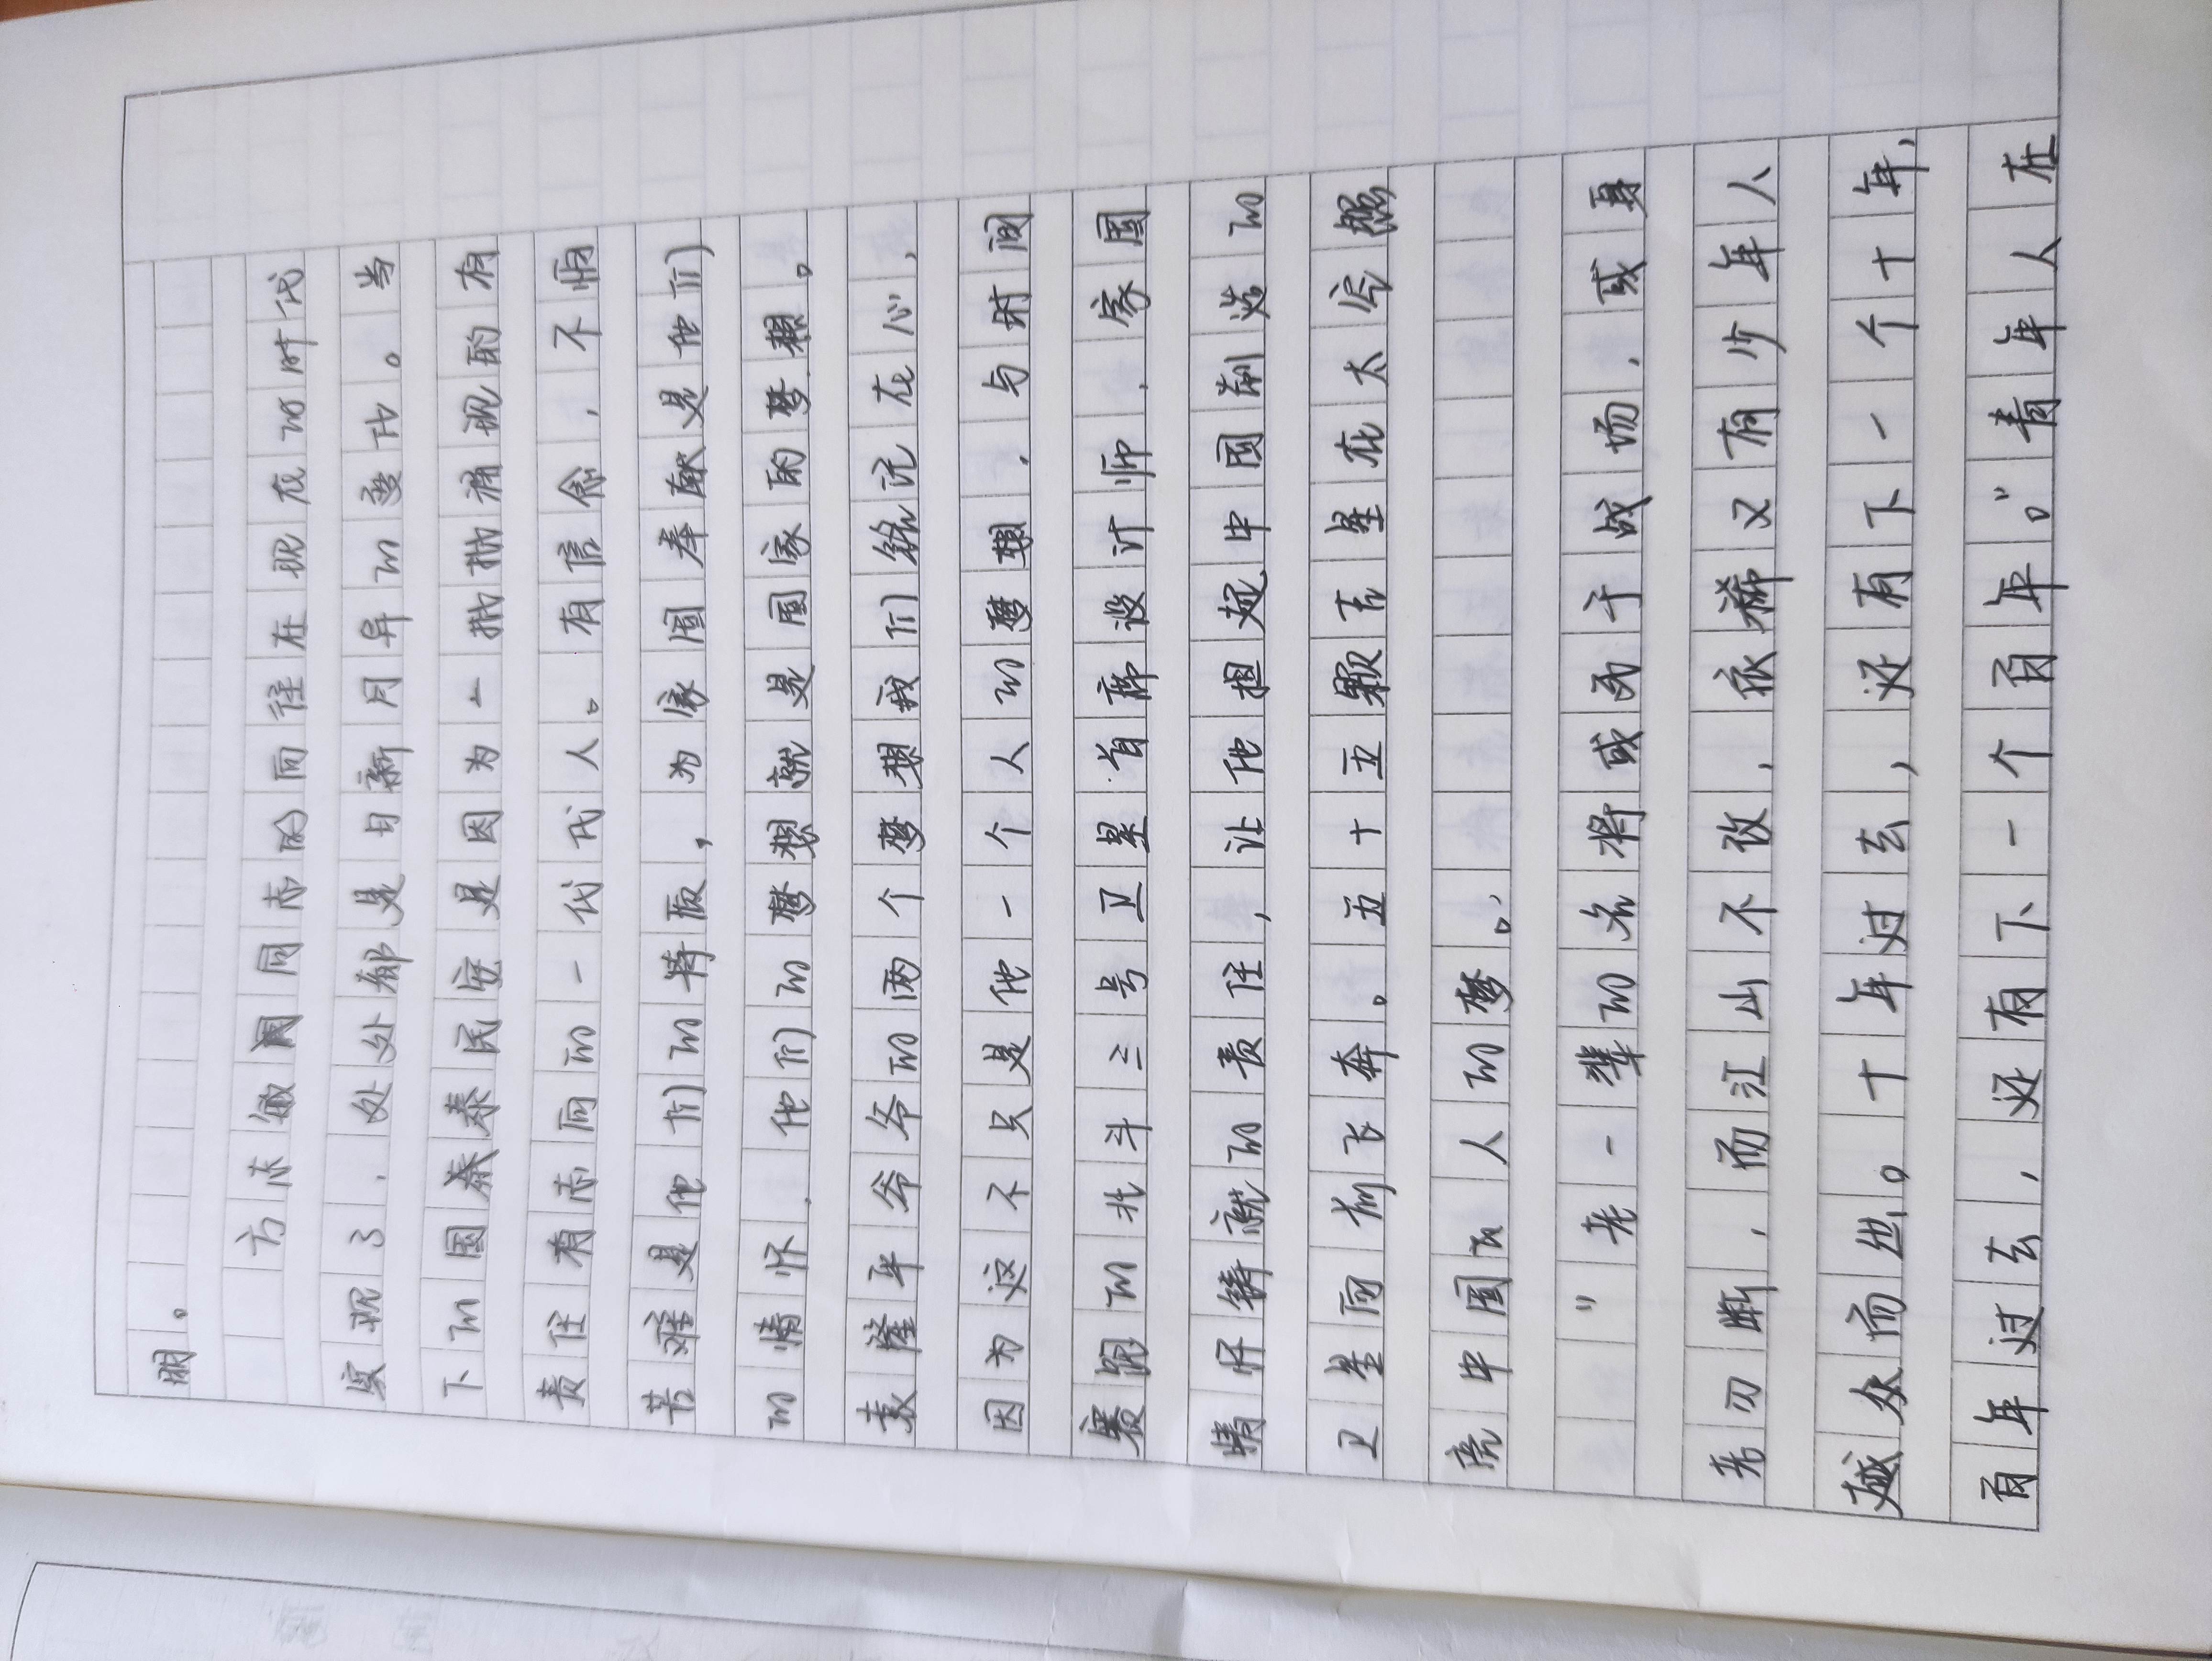 明。
方志敏同志的向往在现在的时代
实现了，处处都是日新月异的变化。当
下的国泰民安是因为一批批涌现的有
责任有志向的一代代人。有信念，不惧
苦难是他们的特质，为家国奉献是他们
的情怀，他们的梦想就是国家的梦想。
袁隆平爷爷的两个梦想我们铭记在心，
因为这不只是他一个人的梦想，与时间
赛跑的北斗二号卫星首席设计师，家国
情怀铸就的责任，让他担起中国制造的
卫星向前飞奔。五十五颗吉星在太空照
亮中国人的梦。
“老一辈的名将或死于战场，或身
老刃断，而江山不改，依稀又有少年人
越众而出。十年过去，还有下一个十年，
百年过去，还有下一个百年。”青年人在